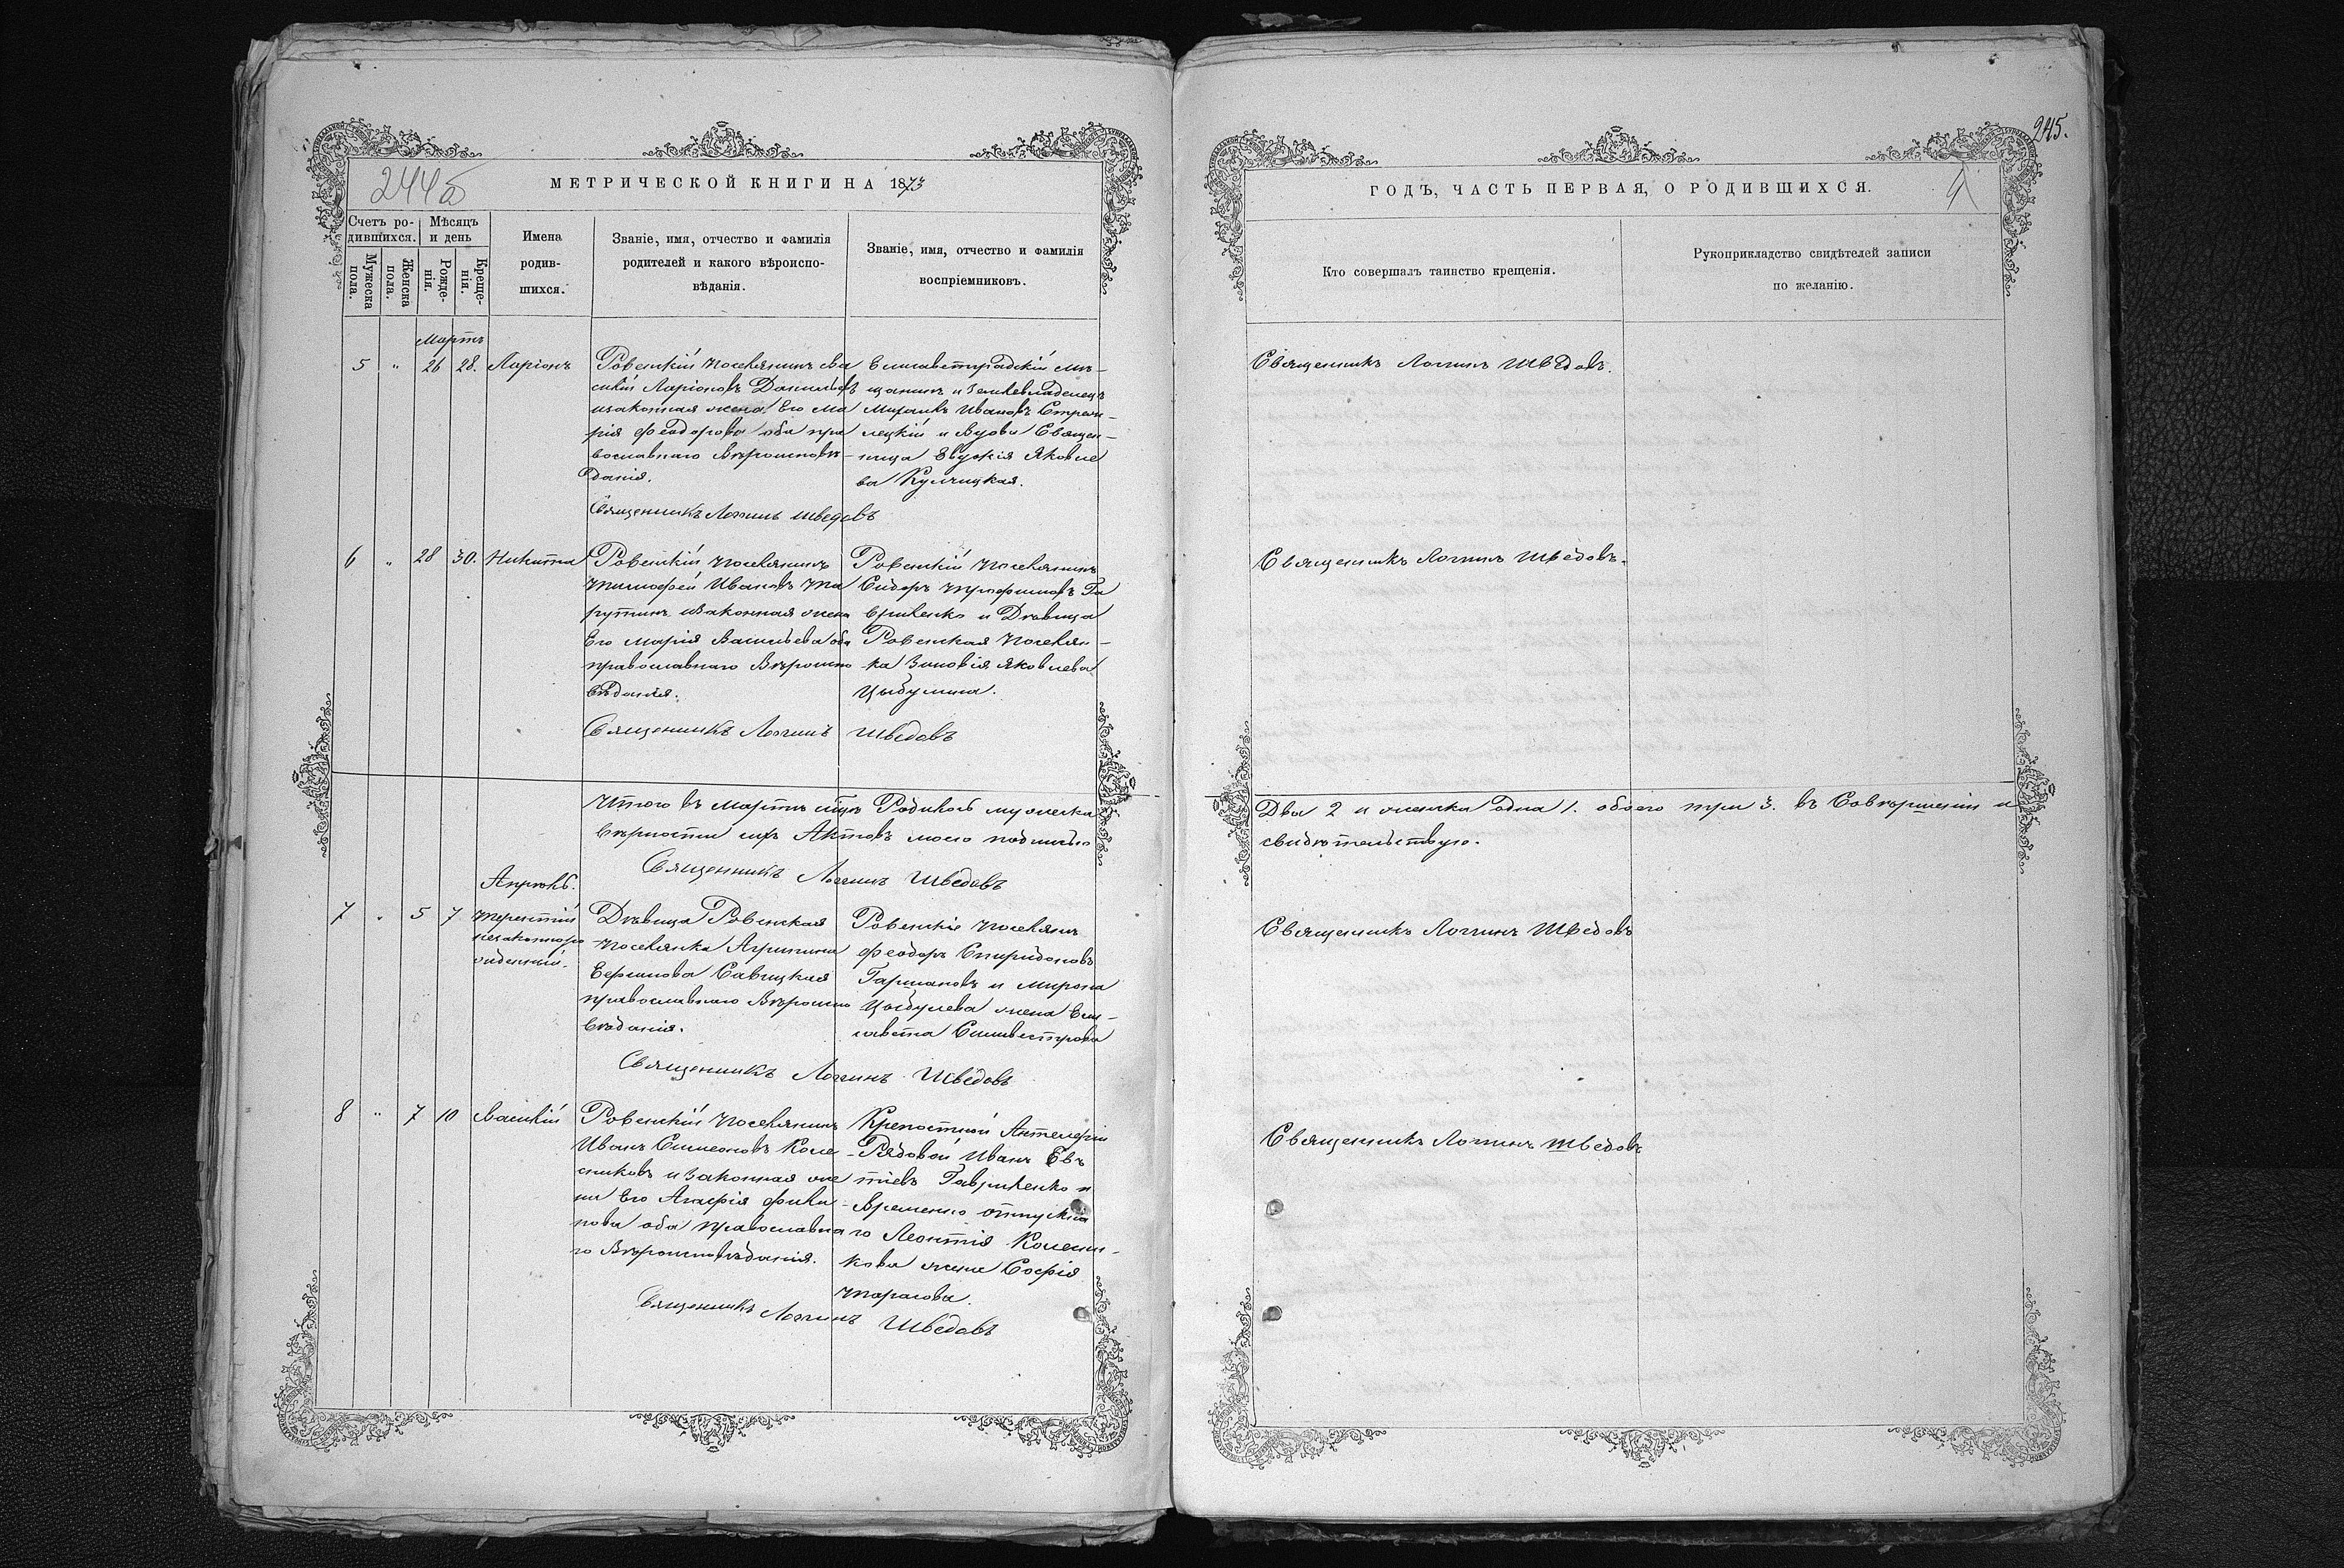 244об
МЕТРИЧЕСКОЙ КНИГИ НА 1873
Счетъ ро-
дившихся.
Мѣсяцъ
и день
Мужеска
пола.
Женска
пола.
Рожде-
нія.
Креще-
нія.
Имена
родив-
шихся.
Званіе, имя, отчество и фамилія
родителей и какого вѣроиспо-
вѣданія.
Званіе, имя, отчество и фамилія
воспріемниковъ.
Мартъ
5 " 26 28. Ларіонъ
Ровенскій поселянинъ Ва
силій Ларіоновъ
изаконная жена Его Ма
рія Феодорова оба пра
вославнаго Вѣроисповѣ-
данія.
Елисаветградскій мѣ-
щанинъ и Землевладелецъ
Михаилъ Ивановъ
лецкій и Вдова Священ-
ница Евдокія Яковле
ва Кульчицкая.
Священникъ Логинъ Шведовъ
6 " 28 30. Никита
Ровенскій поселянинъ
Тимофей Ивановъ Та
рутинъ изаконная жена
Его Марія Васильева оба
православнаго Вѣроиспо
вѣданія.
Ровенскій поселянинъ
Сидоръ Трофимовъ Га
вриленко и Дѣвица
Ровенская поселян-
ка Зиновія Яковлева
Цыбулина.
Священникъ Логинъ Шведовъ
Итого въ Мартѣ мцѣ Родилось мужеска
вѣрности сихъ Актовъ моею подписью
Священникъ Логинъ Шведовъ
Апрѣль.
7 " 5 7 Терентій
незаконноро
жденный.
Дѣвица Ровенская
поселянка Агрипина
Ефимова Савицкая
православнаго Вѣроиспо
вѣданія.
Ровенскіе поселяне
Феодоръ Спиридоновъ
Гармановъ и Мирона
Цыбулева жена Ели-
савета Силивестрова
Священникъ Логинъ Шведовъ
8 " 7 10 Василій
Ровенскій поселянинъ
Иванъ Симеоновъ Коле
сниковъ и Законная же
на Его Агафія Фили
пова оба православна
го Вѣроисповѣданія.
Крепостной Антилеріи
Рядовой Иванъ Евъ
тіевъ Гавриленко и
Временно отпускна
го Леонтія Колесни-
кова жена Софія
Тарасова.
Священникъ Логинъ Шведовъ
245.
ГОДЪ, ЧАСТЬ ПЕРВАЯ, О РОДИВШИХСЯ.
Кто совершалъ таинство крещенія.
Рукоприкладство свидѣтелей записи
по желанію.
Священникъ Логинъ Шведовъ.
Священникъ Логинъ Шведовъ.
Два 2 и женска одна 1. обоего три 3. въ Совершеніи и
свидѣтельствую.
Священникъ Логинъ Шведовъ
Священникъ Логинъ Шведовъ